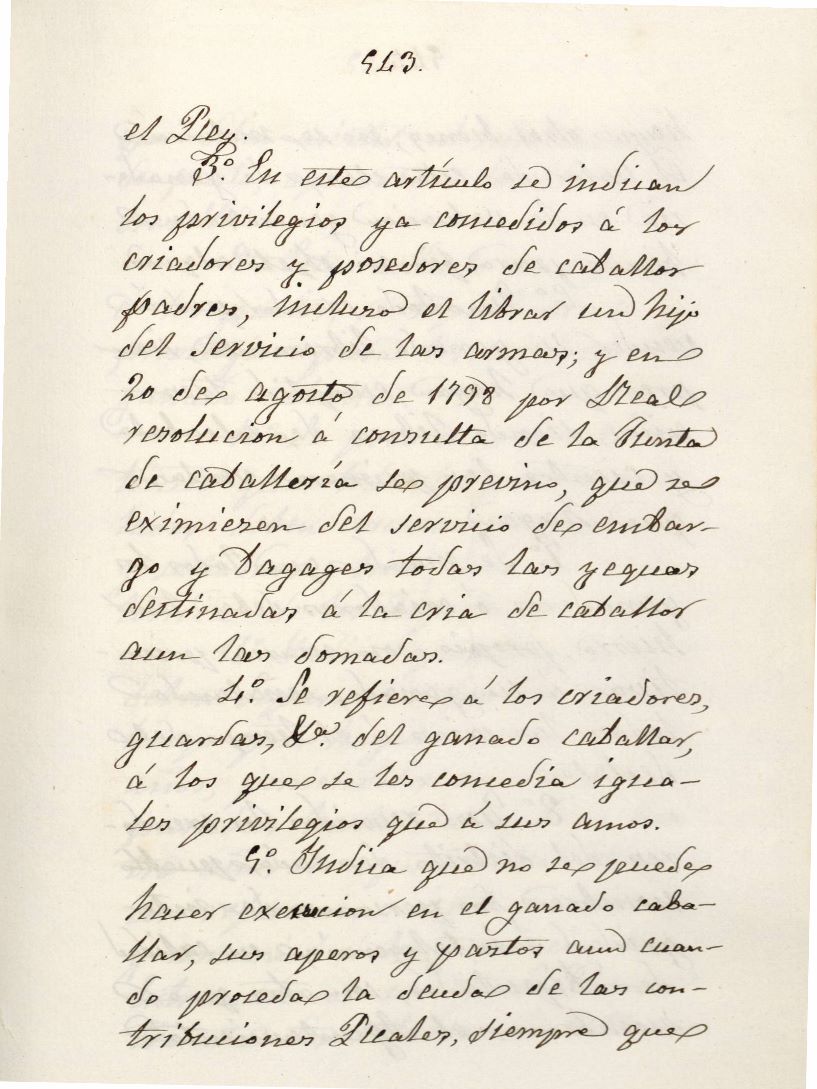 543.
el Rey.
3.º En este artículo se indican
los privilegios ya concedidos á los
criadores y posedores de caballos
padres, incluso el librar un hijo
del servicio de las armas; y en
20 de agosto de 1798 por Real
resolucion á consulta de la Junta
de caballería se previno, que se
eximiesen del servicio de embar-
go y bagages todas las yeguas
destinadas á la cria de caballos
aun las domadas.
4.º Se refiere á los criadores,
guardas, &a. del ganado caballar,
á los que se les concedia igua-
les privilegios que á sus amos.
5.º Indica que no se puede
hacer execucion en el ganado caba-
llar, sus aperos y pastos aun cuan-
do proseda la deuda de las con-
tribuciones Reales, siempre que